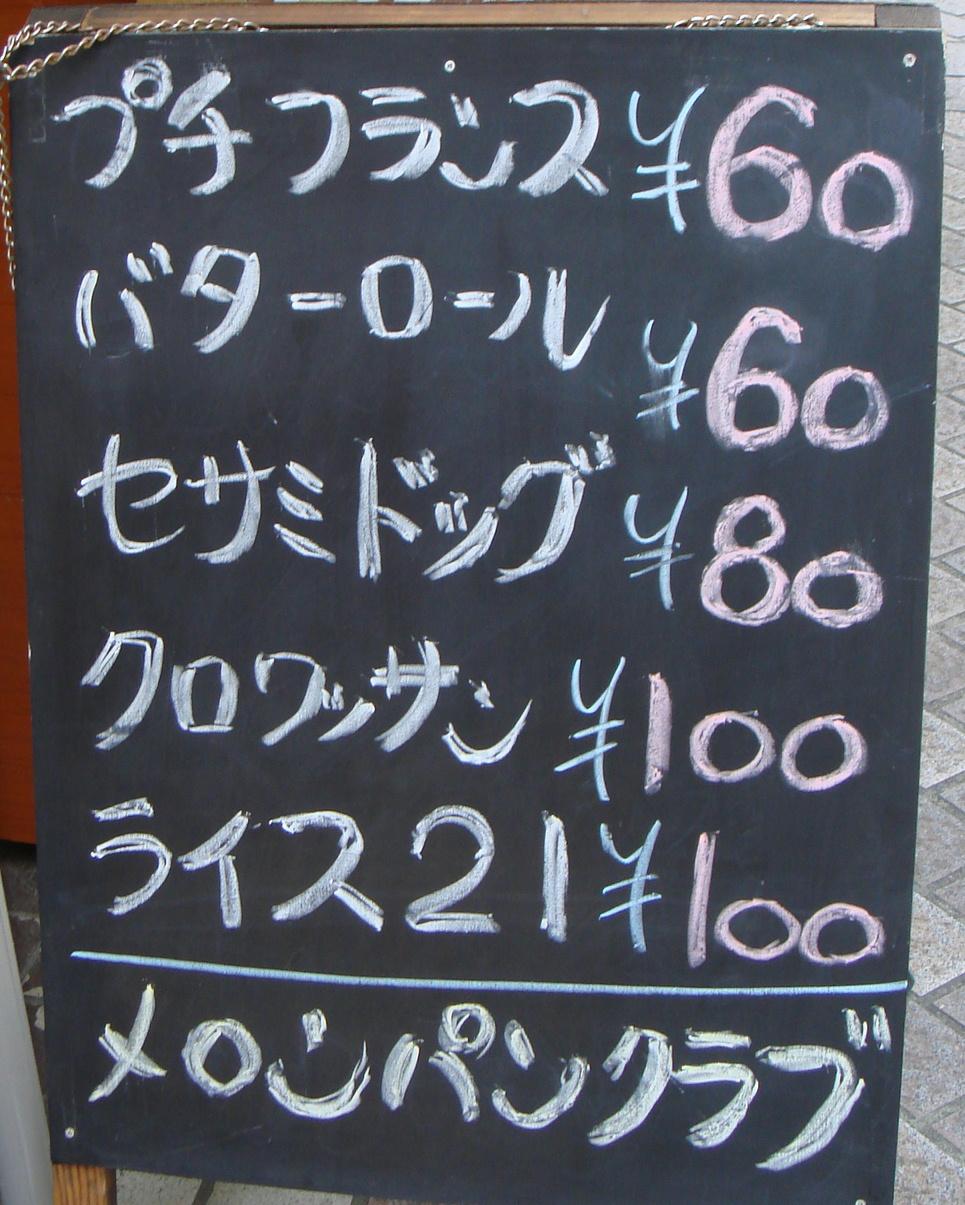 プチフランス ¥60
バターロール ¥60
セサミドッグ ¥80
クロワッサン ¥100
ライス21 ¥100
メロンパンクラブ